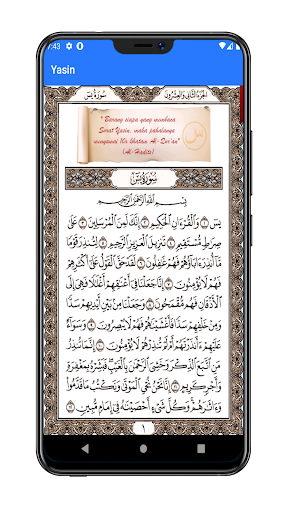 7:43
Yasin
الجزء الثاني والعشرون سورة يس
"Barang siapa yang membaca
Surat Yasin, maka pahalanya
menyamai 10x khatam Al-Qur'an"
(Al-Hadits)
يس
سُورَةُ يسٓ
بِسْمِ ٱللَّهِ ٱلرَّحْمَٰنِ ٱلرَّحِيمِ
يسٓ ١ وَٱلْقُرْءَانِ ٱلْحَكِيمِ ٢ إِنَّكَ لَمِنَ ٱلْمُرْسَلِينَ ٣ عَلَىٰ
صِرَٰطٍ مُّسْتَقِيمٍ ٤ تَنزِيلَ ٱلْعَزِيزِ ٱلرَّحِيمِ ٥ لِتُنذِرَ قَوْمًا
مَّآ أُنذِرَ ءَابَآؤُهُمْ فَهُمْ غَٰفِلُونَ ٦ لَقَدْ حَقَّ ٱلْقَوْلُ عَلَىٰٓ أَكْثَرِهِمْ
فَهُمْ لَا يُؤْمِنُونَ ٧ إِنَّا جَعَلْنَا فِىٓ أَعْنَٰقِهِمْ أَغْلَٰلًا فَهِىَ إِلَى
ٱلْأَذْقَانِ فَهُم مُّقْمَحُونَ ٨ وَجَعَلْنَا مِنۢ بَيْنِ أَيْدِيهِمْ سَدًّا
وَمِنْ خَلْفِهِمْ سَدًّا فَأَغْشَيْنَٰهُمْ فَهُمْ لَا يُبْصِرُونَ ٩ وَسَوَآءٌ
عَلَيْهِمْ ءَأَنذَرْتَهُمْ أَمْ لَمْ تُنذِرْهُمْ لَا يُؤْمِنُونَ ١٠ إِنَّمَا تُنذِرُ
مَنِ ٱتَّبَعَ ٱلذِّكْرَ وَخَشِىَ ٱلرَّحْمَٰنَ بِٱلْغَيْبِ فَبَشِّرْهُ بِمَغْفِرَةٍ
وَأَجْرٍ كَرِيمٍ ١١ إِنَّا نَحْنُ نُحْىِ ٱلْمَوْتَىٰ وَنَكْتُبُ مَا قَدَّمُوا۟
وَءَاثَٰرَهُمْ وَكُلَّ شَىْءٍ أَحْصَيْنَٰهُ فِىٓ إِمَامٍ مُّبِينٍ ١٢
١